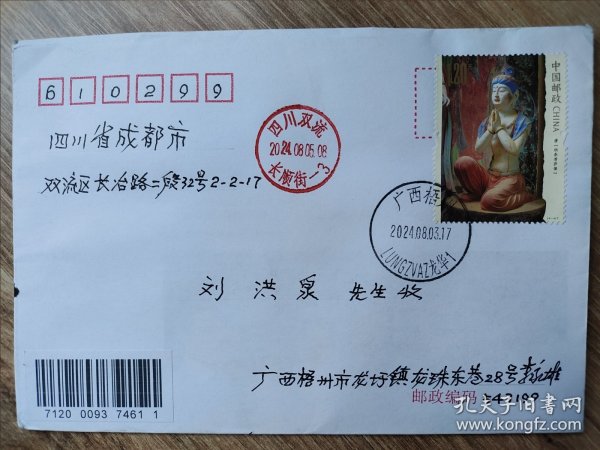 610299
1.20
中国邮政 CHINA
四川省成都市
四川双流
2024.08.05.08
长顺街一3
双流区长冶路二段32号2-2-17
广西梧
2024.08.03.17
LUNGZVAZ龙华1
刘洪泉 先生收
广西梧州市龙圩镇龙珠东巷28号
邮政编码
7120 0093 7461 1
孔夫子旧书网
www.kongfz.com